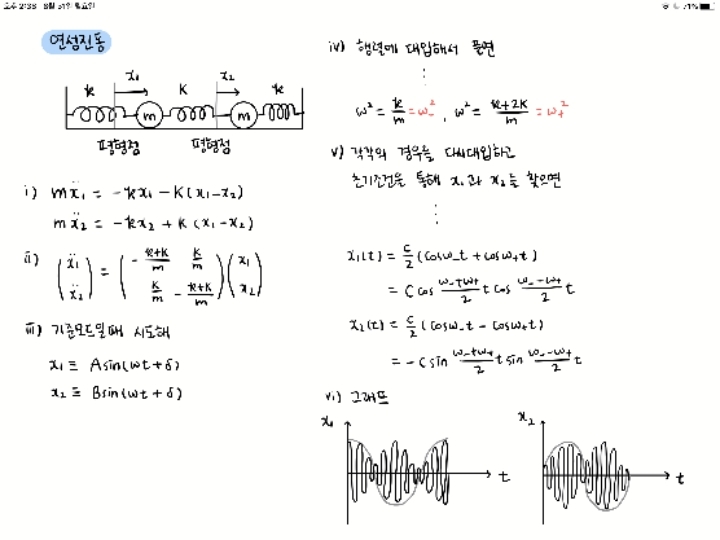 오후 2:38 8월 31일 토요일
71%
연성진동
k x₁ K x₂ k
m m
평형점 평형점
i) mẍ₁ = -kx₁ - K(x₁-x₂)
mẍ₂ = -kx₂ + K(x₁-x₂)
ii) (ẍ₁ ẍ₂) = (-(k+K)/m K/m K/m -(k+K)/m)(x₁ x₂)
iii) 기준모드일때 시도해
x₁ ≡ Asin(ωt+δ)
x₂ ≡ Bsin(ωt+δ)
iv) 행렬에 대입해서 풀면
⋮
ω² = k/m = ω₋², ω² = (k+2K)/m = ω₊²
v) 각각의 경우를 다시대입하고
초기조건을 통해 x₁과 x₂를 찾으면
⋮
x₁(t) = c/2 (cosω₋t + cosω₊t)
= C cos (ω₋+ω₊)/2 t cos (ω₋-ω₊)/2 t
x₂(t) = c/2 (cosω₋t - cosω₊t)
= -C sin (ω₋+ω₊)/2 t sin (ω₋-ω₊)/2 t
vi) 그래프
x₁ t x₂ t